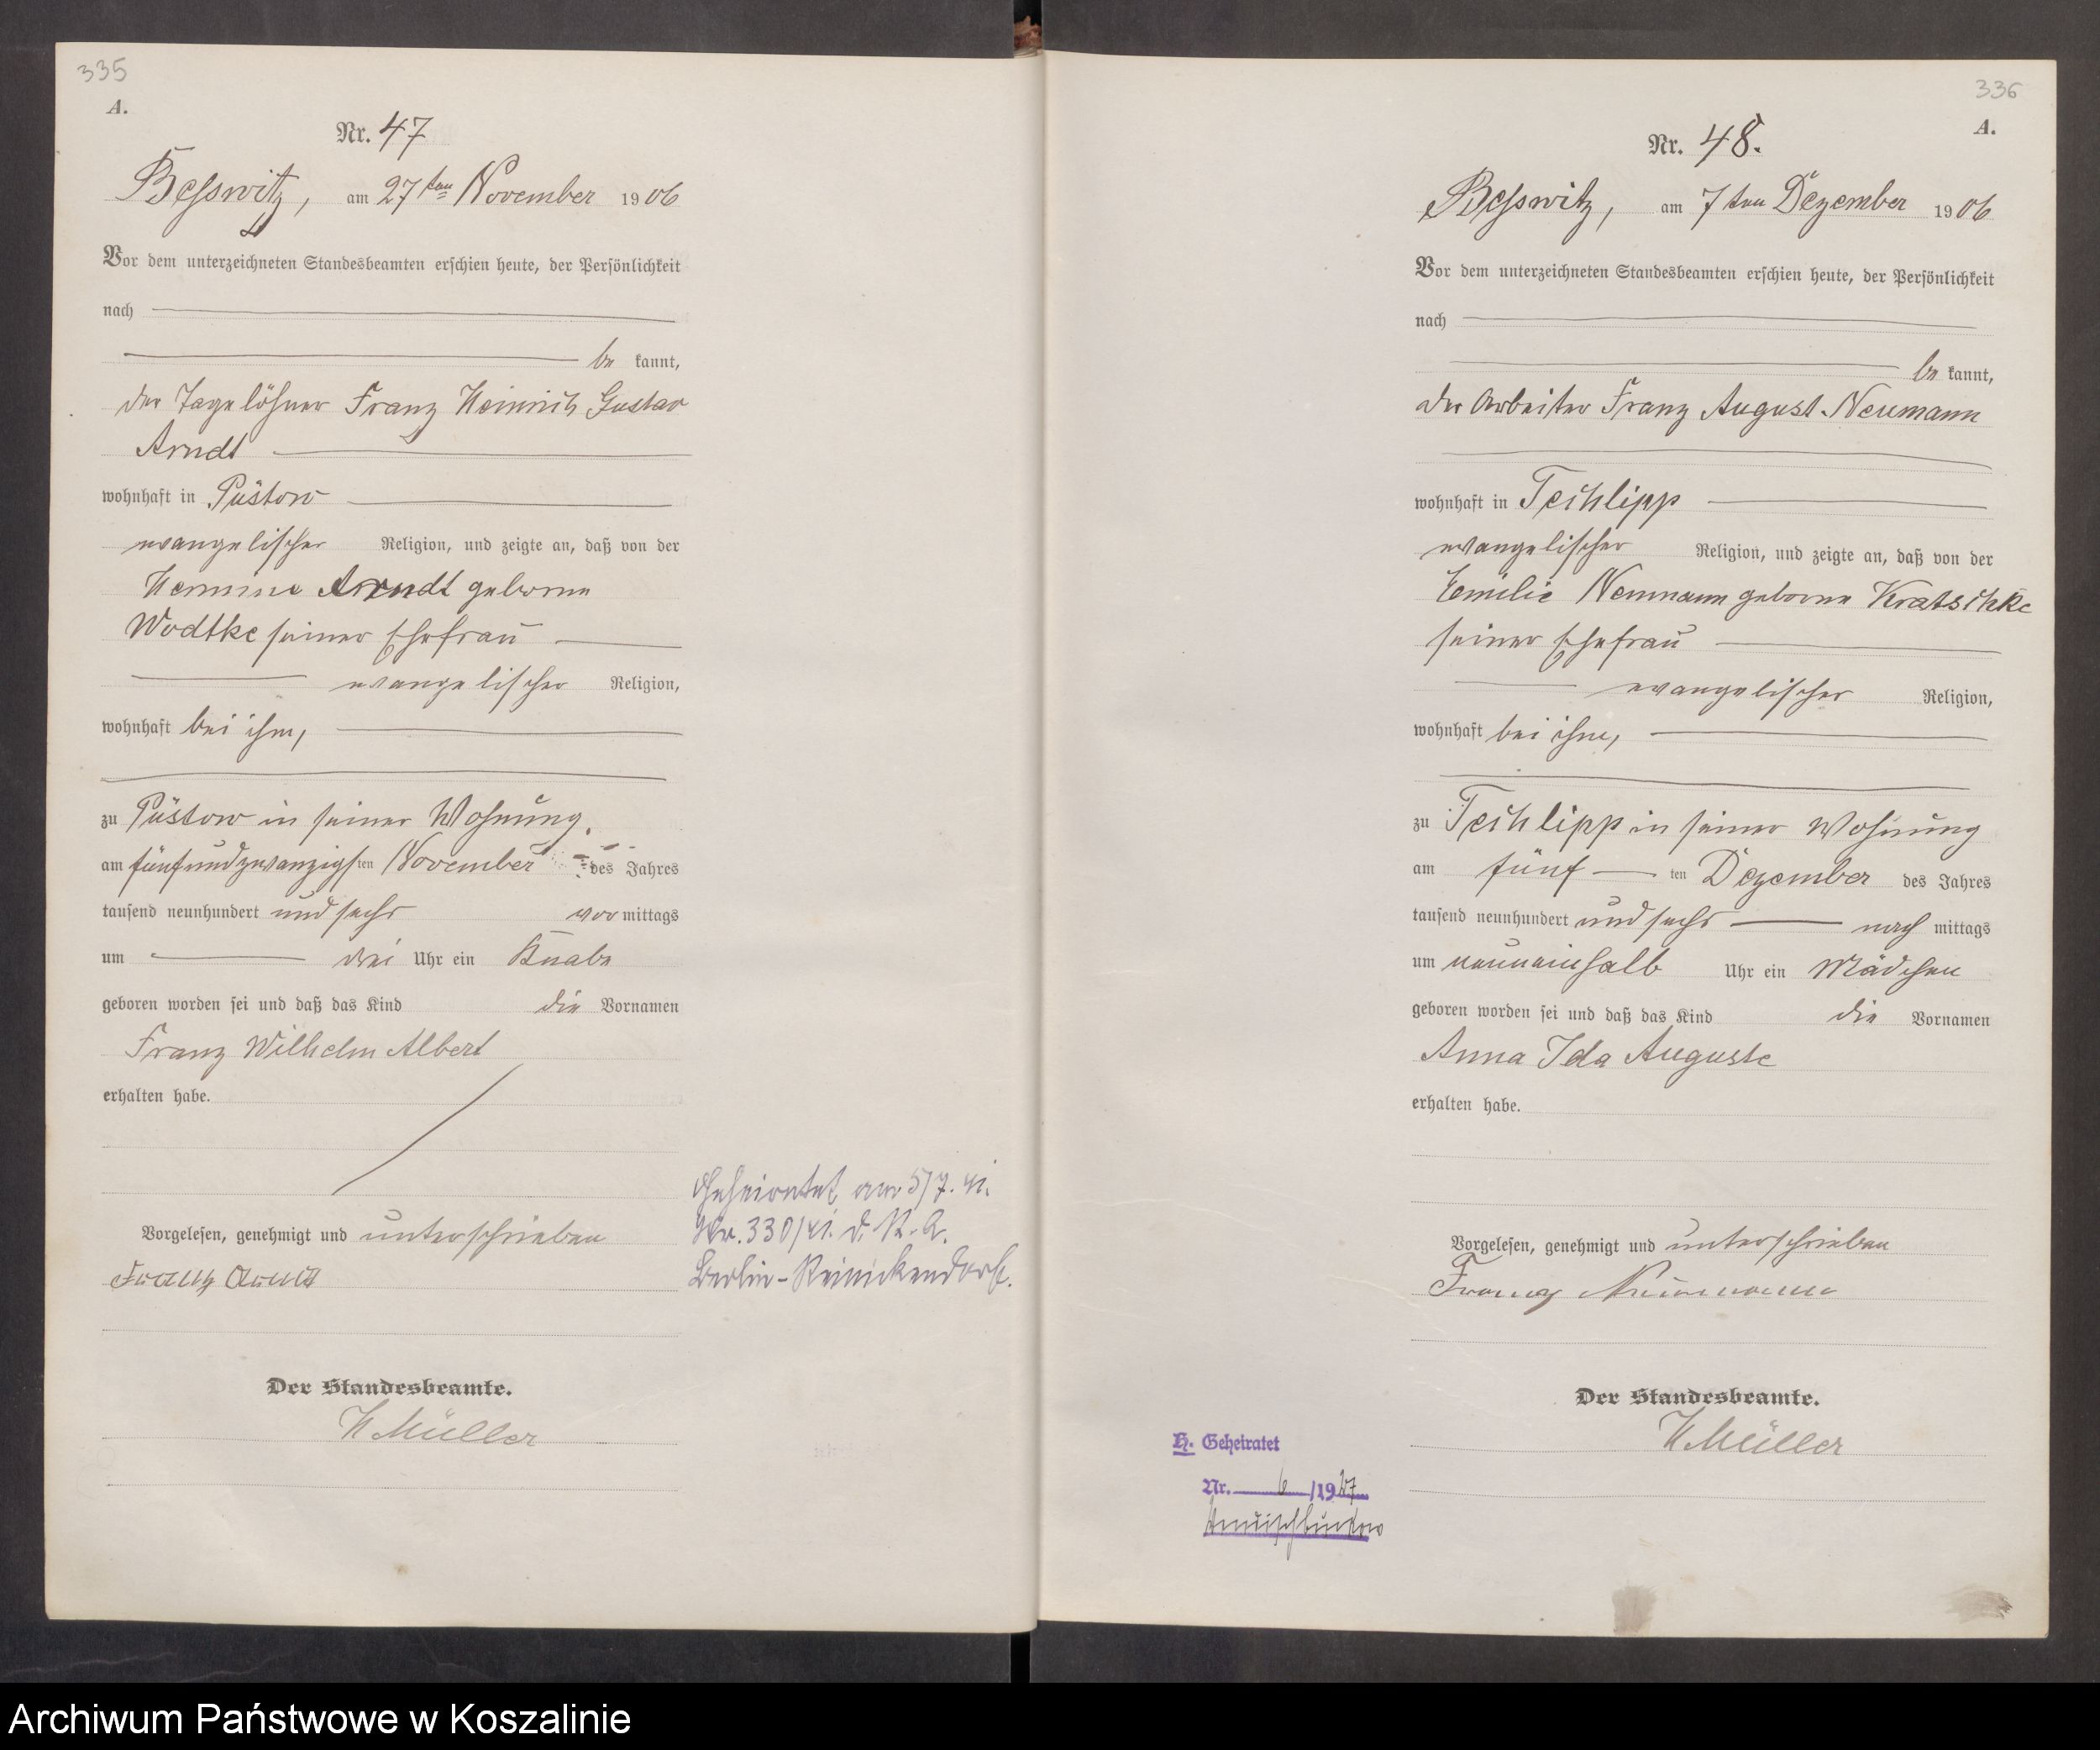 335
A.
Nr. 47
Besswitz, am 27ten November 1906
Vor dem unterzeichneten Standesbeamten erschien heute, der Persönlichkeit
nach
be kannt,
der Tagelöhner Franz Heinrich Gustav
Arndt
wohnhaft in Püstow
evangelischer Religion, und zeigte an, daß von der
Hermine Arndt geborne
Wodtke seiner Ehefrau
evangelischer Religion,
wohnhaft bei ihm,
zu Püstow in seiner Wohnung,
am fünfundzwanzigsten November des Jahres
tausend neunhundert und sechs vor mittags
um drei Uhr ein Knabe
geboren worden sei und daß das Kind die Vornamen
Franz Wilhelm Albert
erhalten habe.
Vorgelesen, genehmigt und unterschrieben
Franz Arndt
Der Standesbeamte.
H Müller
Geheiratet am 5/7. 41.
Nr. 330/41. d. St. A.
Berlin-Reinickendorf.
336
A.
Nr. 48.
Besswitz, am 7ten Dezember 1906
Vor dem unterzeichneten Standesbeamten erschien heute, der Persönlichkeit
nach
be kannt,
der Arbeiter Franz August Neumann
wohnhaft in Techlipp
evangelischer Religion, und zeigte an, daß von der
Emilie Neumann geborne Kratschke
seiner Ehefrau
evangelischer Religion,
wohnhaft bei ihm,
zu Techlipp in seiner Wohnung
am fünf ten Dezember des Jahres
tausend neunhundert und sechs nach mittags
um neuneinhalb Uhr ein Mädchen
geboren worden sei und daß das Kind die Vornamen
Anna Ida Auguste
erhalten habe.
Vorgelesen, genehmigt und unterschrieben
Franz Neumann
Der Standesbeamte.
H Müller
H. Geheiratet
Nr. 6 /1927
Archiwum Państwowe w Koszalinie